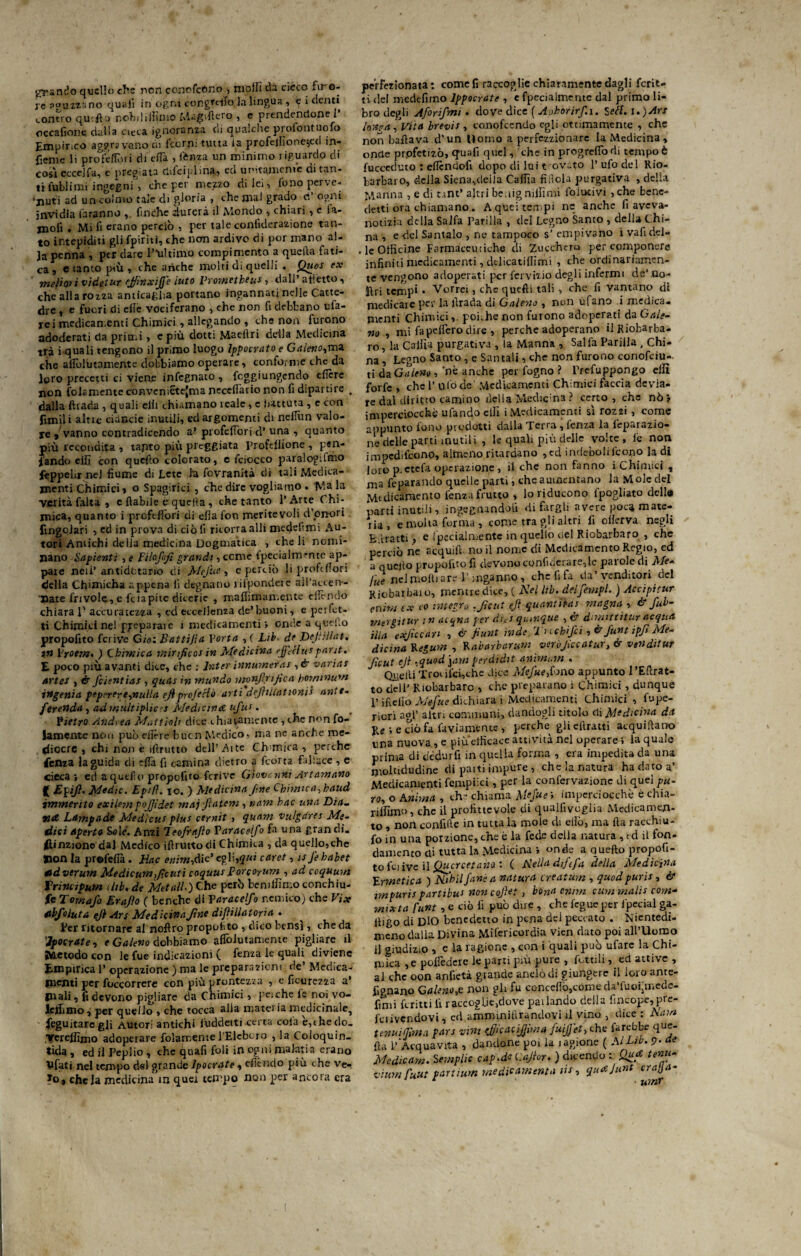 grando quello che non conoscono, mossi da cieco furo-
re aguzzano quasi in ogni congresso la lingua, e i denti
contro questo nobilissimo Magistero, e prendendone l'
occasione dalla cieca ignoranza di qualche profontuoso
Empirico aggravano di scorni tutta la professione, ed in-
sieme li professori di essa, senza un minimo riguardo di
così eccelsa, e pregiata disciplina, ed unitamente di tan-
ti sublimi ingegni, che per mezzo di lei, sono perve-
nuti ad un colmo tale di gloria, che mal grado d' ogni
invidia saranno, finche durerà il Mondo, chiari, e fa-
mosi. Mi si erano perciò, per tale considerazione tan-
to intepiditi gli spiriti, che non ardivo di por mano al-
la penna, per dare l'ultimo compimento a questa fati-
ca, e tanto più, che anche molti di quelli. Quos ex
meliori videtur effinxisse luto Prometheus, dall' affetto,
che alla rozza anticaglia portano ingannati nelle Catte-
dre, e fuori di esse vociferano, che non si debbano usa-
re i medicamenti Chimici, allegando, che non furono
adoderati da primi, e più dotti Maestri della Medicina
trà i quali tengono il primo luogo Ippocrato e Galeno, ma
che assolutamente dobbiamo operare, conforme che da
loro precetti ci viene insegnato, soggiungendo essere
non solamente conveniente, ma necessario non si dipartire
dalla strada, quali essi chiamano reale, e battuta, e con
simili altre ciancie inutili, ed argomenti di nessun valo-
re, vanno contradicendo a' professori d' una, quanto
più recondita, tanto più preggiata Professione, pen-
sando essi con questo colorato, e sciocco paralogismo
seppelir nel fiume di Lete la sovranità di tali Medica-
menti Chimici, o Spagirici, che dire vogliamo. Ma la
verità salta, e stabile e questa, che tanto l'Arte Chi-
mica, quanto i professori di essa son meritevoli d'onori
singolari, ed in prova di ciò si ricorra alli medesimi Au-
tori Antichi della medicina Dogmatica, che li nomi-
nano Sapienti, e Filosofi grandi, come specialmente ap-
pare nell' antidotario di Mesue, e perciò li professori
della Chimicha appena si degnano rispondere all'accen-
nate frivole, e sciapite dicerie, massimamente essendo
chiara l' accuratezza, ed eccellenza de' buoni, e perfet-
ti Chimici nel preparare i medicamenti; onde a questo
proposito scrive Gio: Battista Porta, ( Lib. de Destillat.
in Proem. ) Chimica mirificos in Medicina effectus parit.
E poco più avanti dice, che : Inter innumeras, & varias
artes, & scientias, quas in mundo monstrifica hominum
ingenia peperere, nulla est profectò arti destillationis ante-
ferenda, ad multiplices Medicinæ usus.
Pietro Andrea Mattioli dice chiaramente, che non so-
lamente non può essere buon Medico, ma ne anche me-
diocre, chi non è istrutto dell' Arte Chimica, perche
senza la guida di essa si camina dietro a scorta fallace, e
cieca; ed a questo proposito scrive Giovanni Artamano
( Epist. Medic. Epist. 10. ) Medicina sine Chimica, haud
immerito exilem possidet majestatem, nam hac una Dia-
næ Lampade Medicus plus cernit, quam vulgares Me-
dici aperto Sole. Anzi Teofrasto Paracelso fa una gran di-
stinzione dal Medico istrutto di Chimica, da quello, che
non la professa. Hac enim, dic' egli, qui caret, is se habet
ad verum Medicum, sicuti coquus Porcorum, ad coquum
Principum (lib. de Metall.) Che però benissimo conchiu-
se Tomaso Erasto ( benche di Paracelso nemico) che Vix
absoluta est Ars Medicina sine distillatoria.
Per ritornare al nostro proposito, dico bensì, che da
Ipocrate, e Galeno dobbiamo assolutamente pigliare il
Metodo con le sue indicazioni ( senza le quali diviene
Empirica l' operazione ) ma le preparazioni de' Medica-
menti per soccorrere con più prontezza, e sicurezza a'
mali, si devono pigliare da Chimici, perche se noi vo-
lessimo, per quello, che tocca alla materia medicinale,
seguitare gli Autori antichi suddetti certa cosa è, che do-
veressimo adoperare solamente l'Eleboro, la Coloquin-
tida, ed il Peplio, che quasi soli in ogni malatia erano
usati nel tempo del grande Ipocrate, essendo più che ve-
ro, che la medicina in quei tempo non per ancora era
perfezionata: come si raccoglie chiaramente dagli scrit-
ti del medesimo Ippocrate, e specialmente dal primo li-
bro degli Aforismi. dove dice ( Aphorirs.1. Sect. 1. ) Ars
longa, Vita brevis, conoscendo egli ottimamente, che
non bastava d' un Uomo a perfezzionare la Medicina,
onde profetizò, quasi quel, che in progresso di tempo è
succeduto : essendosi dopo di lui trovato l' uso del Rio-
barbaro, della Siena, della Cassia fistola purgativa, della
Manna, e di tant' altri benignissimi solutivi, che bene-
detti ora chiamano. A quei tempi ne anche si aveva-
notizia della Salsa Parilla, del Legno Santo, della Chi-
na, e del Santalo, ne tampoco s' empivano i vasi del-
le Officine Farmaceutiche di Zucchero per componere
infiniti medicamenti, delicatissimi, che ordinariamen-
te vengono adoperati per servizio degli infermi de' no-
stri tempi. Vorrei, che questi tali, che si vantano di
medicare per la strada di Galeno, non usano i medica-
menti Chimici, poiche non furono adoperati da Gale-
no, mi sapessero dire, perche adoperano il Riobarba-
ro, la Cassia purgativa, la Manna, Salsa Parilla, Chi-
na, Legno Santo, e Santali, che non furono conosciu-
ti da Galeno, nè anche per sogno ? Presuppongo essi
forse, che l' uso de' Medicamenti Chimici faccia devia-
re dal diritto camino della Medicina ? certo, che nò;
imperciocchè usando essi i Medicamenti sì rozzi, come
appunto sono prodotti dalla Terra, senza la separazio-
ne delle parti inutili, le quali più delle volte, se non
impediscono, almeno ritardano, ed indeboliscono la di
loro perfetta operazione, il che non fanno i Chimici,
ma separando quelle parti, che aumentano la Mole del
Medicamento senza frutto, lo riducono spogliato delle
parti inutili, ingegnandosi di fargli avere poca mate-
ria, e molta forma, come tra gli altri si osserva negli
Estratti, e specialmente in quello del Riobarbaro, che
perciò ne acquistano il nome di Medicamento Regio, ed
a questo proposito si devono considerare, le parole di Me-
sue nel mostrare l' inganno, che si fa da' venditori del
Riobarbaro, mentre dice, ( Nel lib. del sempl. ) Accipitur
enim ex eo integro, sicut est quantitas magna, & sub-
mergitur in acqua per dies quinque, & dimittitur acqua
illa exsiccari, & fiunt inde Trochisci, & sunt ipsi Me-
dicina Regum, Rabarbarum vero siccatur, & venditur
sicut est, quod jam perdidit animam.
Questi Trocisci, che dice Mesue, sono appunto l'Estrat-
to dell' Riobarbaro, che preparano i Chimici, dunque
l' istesso Mesue dichiara i Medicamenti Chimici, supe-
riori agl' altri communi, dandogli titolo di Medicina da
Re; e ciò fa saviamente, perche gli estratti acquistano
una nuova, e più efficace attività nel operare; la quale
prima di dedursi in quella forma, era impedita da una
moltidudine di parti impure, che la natura ha dato a'
Medicamenti semplici, per la conservazione di quel pu-
ro, o Anima, che chiama Mesue; imperciocchè è chia-
rissimo, che il profittevole di qualsivoglia Medicamen-
to, non consiste in tutta la mole di esso, ma sta racchiu-
so in una porzione, che è la sede della natura, ed il fon-
damento di tutta la Medicina; onde a questo proposi-
to scrive il Quercetano : ( Nella difesa della Medicina
Ermetica ) Nihil sane a natura creatum, quod puris, &
impuris partibus non constet, bona enim cum malis com-
mixta sunt, e ciò si può dire, che segue per special ga-
stigo di DIO benedetto in pena del peccato. Nientedi-
meno dalla Divina Misericordia vien dato poi all'Uomo
il giudizio, e la ragione, con i quali può usare la Chi-
mica, e possedere le parti più pure, sottili, ed attive,
al che con ansietà grande anelò di giungere il loro ante-
signano Galeno, e non gli fu concesso, come da'suoi mede-
simi scritti si raccoglie, dove parlando della sincope, pre-
scrivendovi, ed amministrandovi il vino, dice : Nam
tenuissima pars vini efficacissima fuisset, che sarebbe que-
sta l' Acquavita, dandone poi la ragione ( Al Lib. 9. de
Medicam. Semplic cap. de Castor. ) dicendo : Quæ tenu-
vium sunt partium medicamenta iis, quæ sunt crassa-
umr